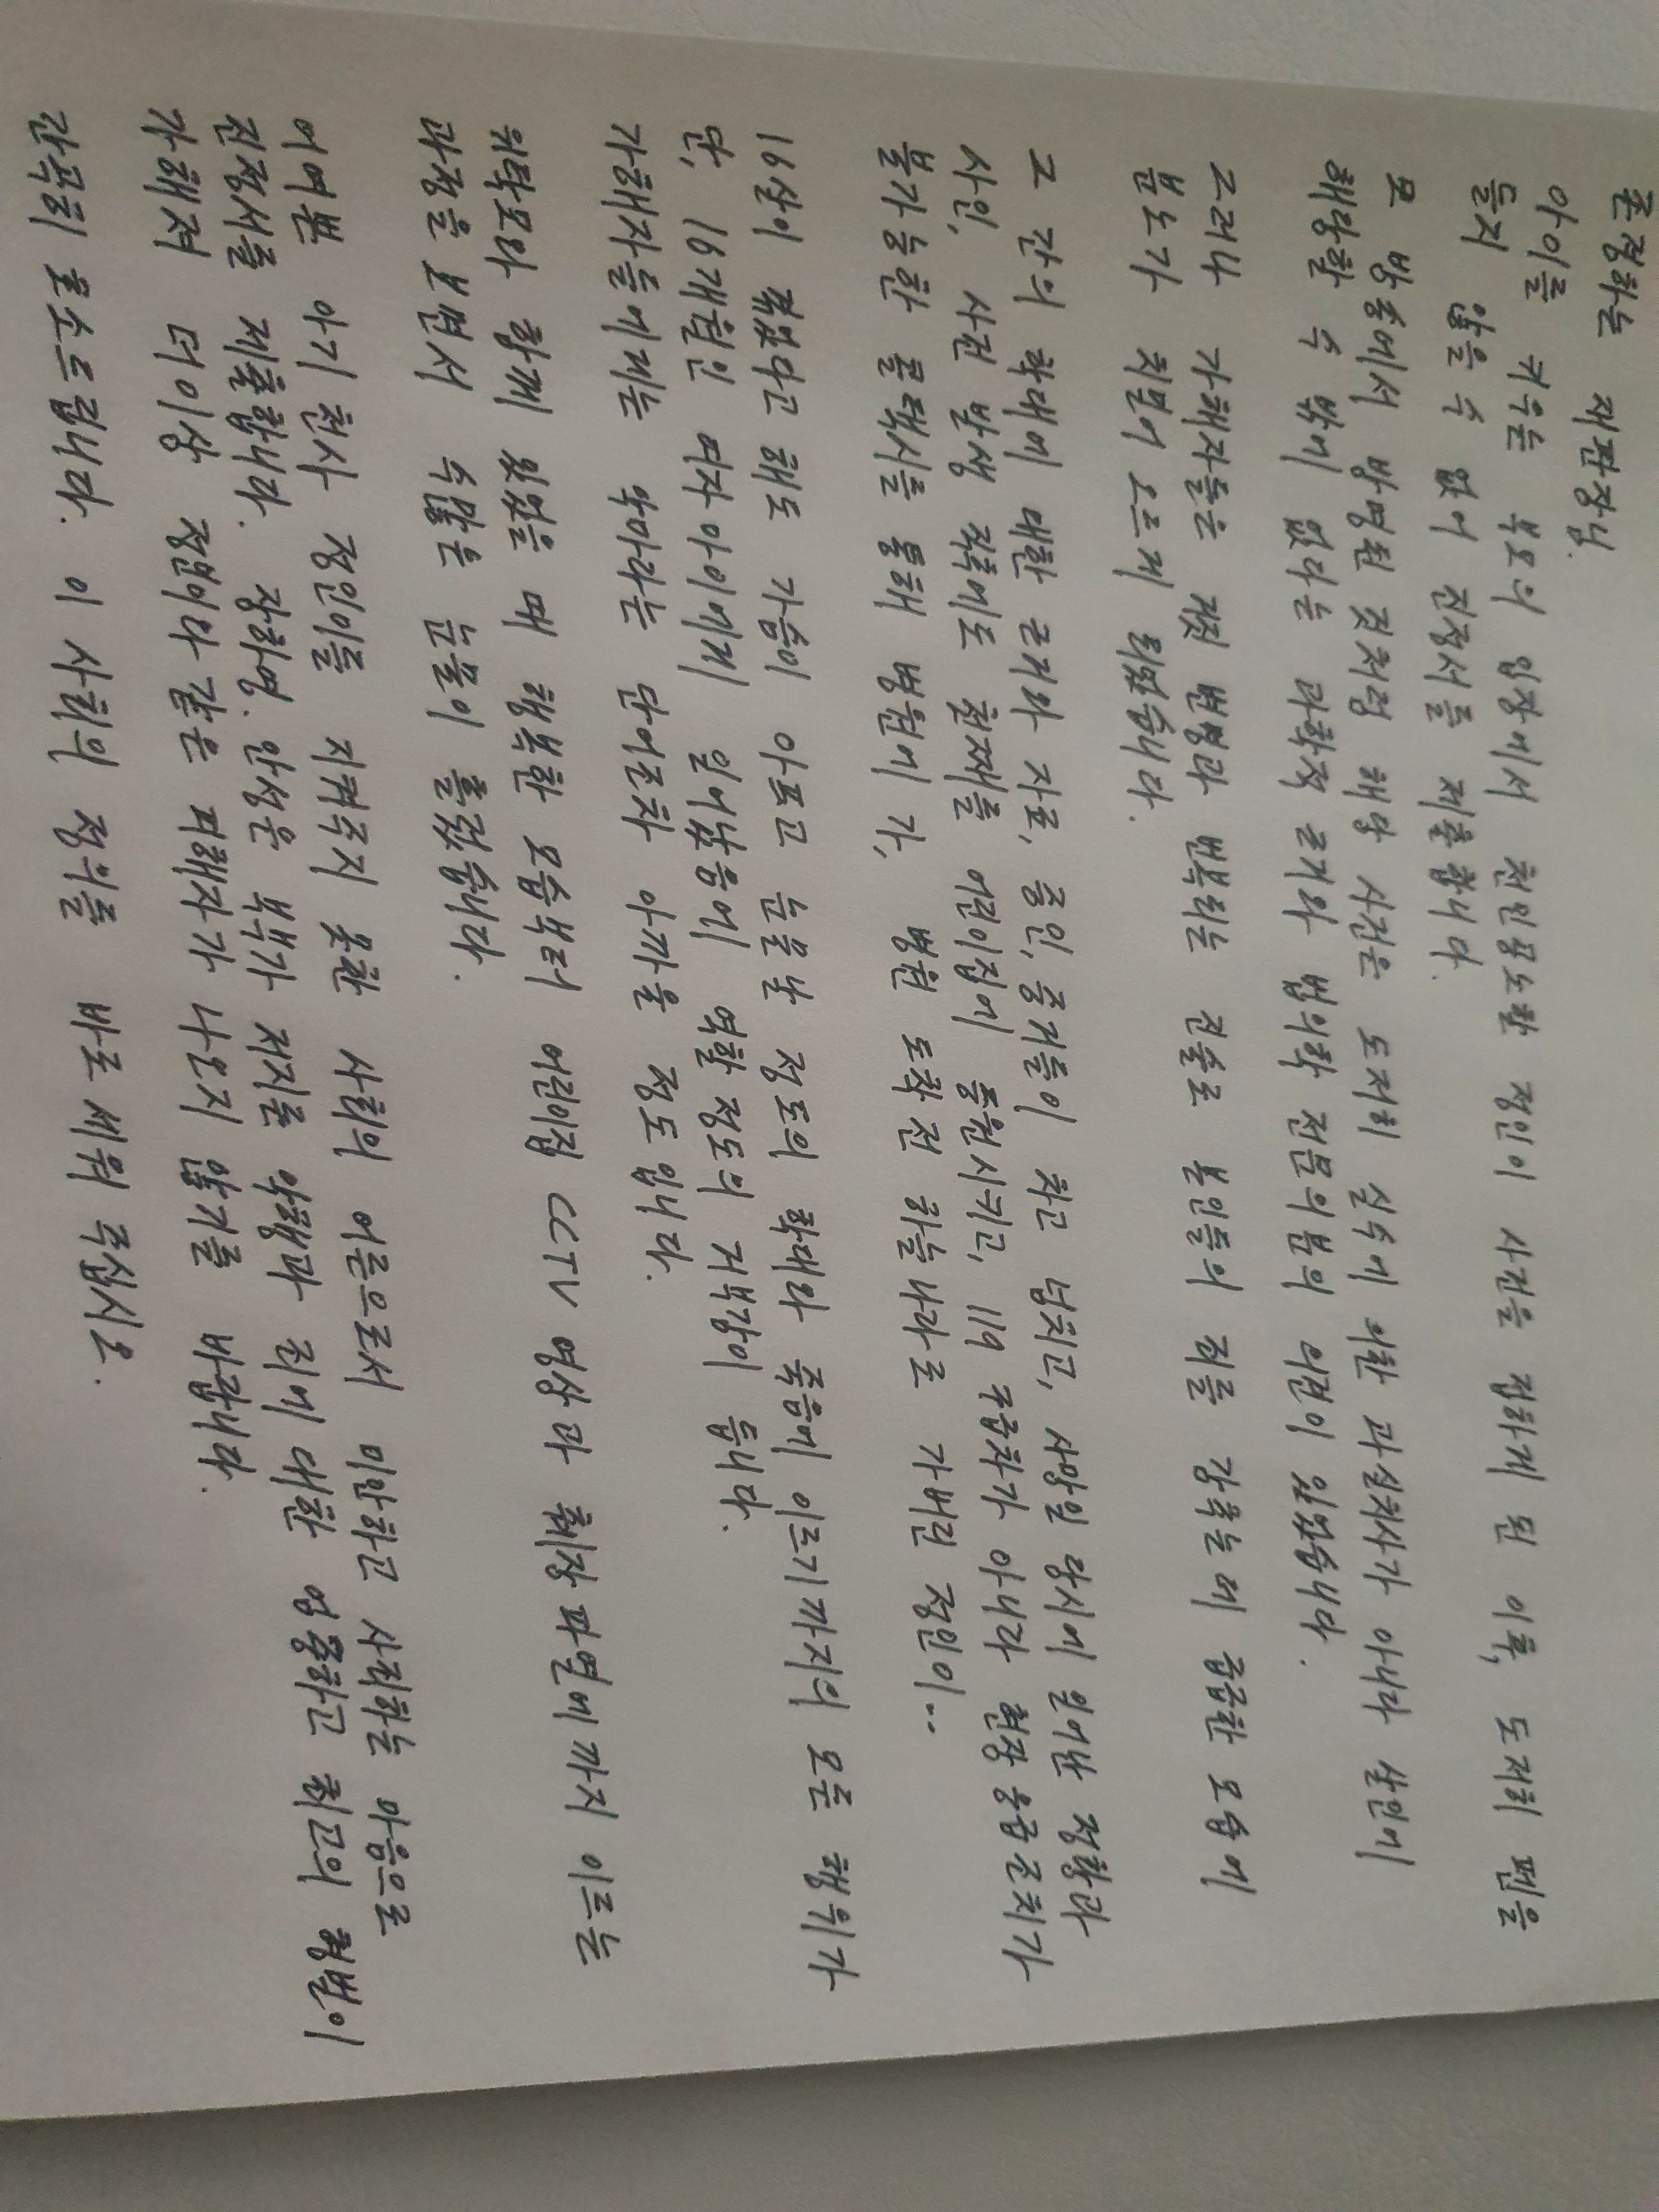 존경하는 재판장님.
아이를 키우는 부모의 입장에서 천인공노할 정인이 사건을 접하게 된 이후, 도저히 펜을
들지 않을 수 없어 진정서를 제출합니다.
모 방송에서 방영된 것처럼 해당 사건은 도저히 실수에 의한 과실치사가 아니라 살인에
해당할 수 밖에 없다는 과학적 근거와 법의학 전문의분의 의견이 있었습니다.
그러나 가해자들은 거짓 변명과 번복되는 진술로 본인들의 죄를 감추는데 급급한 모습에
분노가 치밀어 오르게 되었습니다.
그 간의 학대에 대한 근거와 자료, 증인, 증거들이 차고 넘치고, 사망일 당시에 일어난 정황과
사인, 사건 발생 직후에도 첫째를 어린이집에 등원시키고, 119 구급차가 아니라 현장 응급 조치가
불가능한 콜택시를 통해 병원에 가, 병원 도착 전 하늘나라로 가버린 정인이..
16살이 겪었다고 해도 가슴이 아프고 눈물 날 정도의 학대와 죽음에 이르기까지의 모든 행위가
단, 16개월인 여자 아이에게 일어났음에 역할 정도의 거북감이 듭니다.
가해자들에게는 악마라는 단어조차 아까울 정도입니다.
위탁모와 함께 있었을 때 행복한 모습부터 어린이집 CCTV 영상과 췌장파열에까지 이르는
과정을 보면서 수많은 눈물이 흘렀습니다.
어여쁜 아기 천사 정인이를 지켜주지 못한 사회의 어른으로서 미안하고 사죄하는 마음으로
진정서를 제출합니다. 장하영, 안성은 부부가 저지른 악행과 죄에 대한 엄중하고 최고의 형벌이
가해져 더 이상 정인이와 같은 피해자가 나오지 않기를 바랍니다.
간곡히 호소드립니다. 이 사회의 정의를 바로 세워 주십시오.